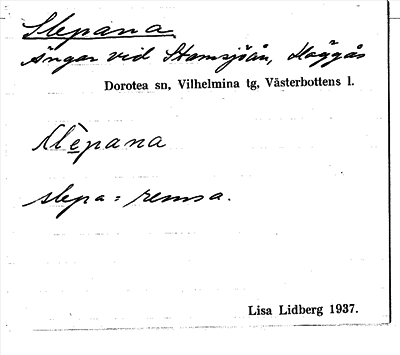 Slepana
Ängar vid Stamsjöån, Höggås
Dorotea sn, Vilhelmina tg, Västerbottens l.
slèpana
slepa = remsa.
Lisa Lidberg 1937.